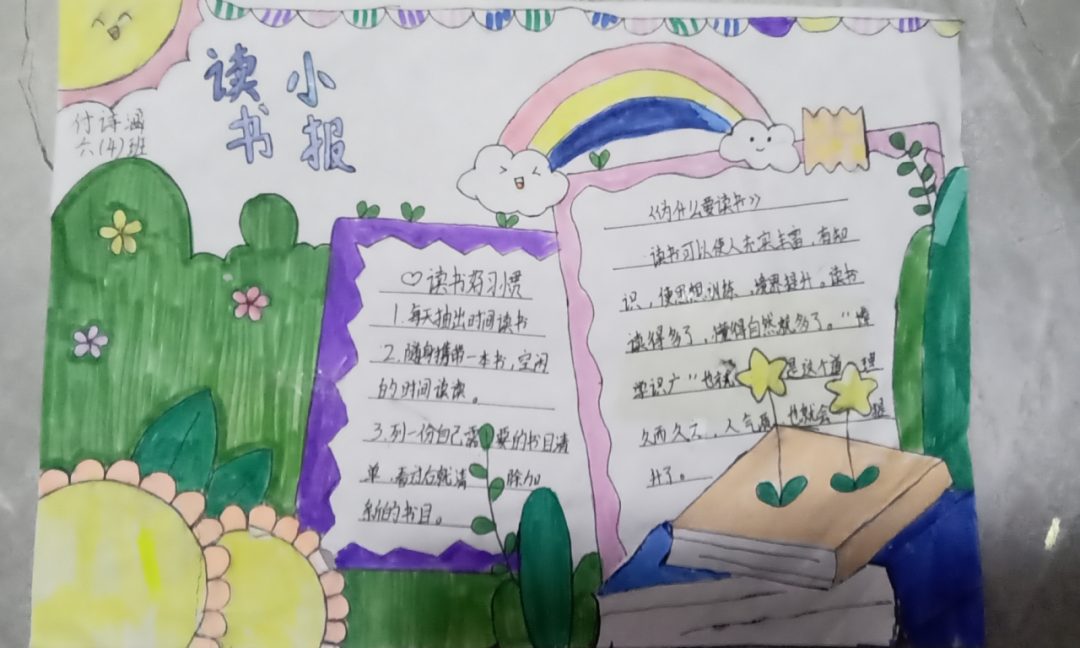 读书
小报
付诗涵
六(4)班
♡读书好习惯
1.每天抽出时间读书
2.随身携带一本书,空闲
的时间读读。
3.列一份自己需要的书目清
单,看过后就清除加
新的书目。
《为什么要读书》
读书可以使人充实丰富,有知
识,使思想训练,境界提升。读书
读得多了,懂得自然就多了。“博
学识广”也就是这个道理
久而久之,人气质也就会提
升了。